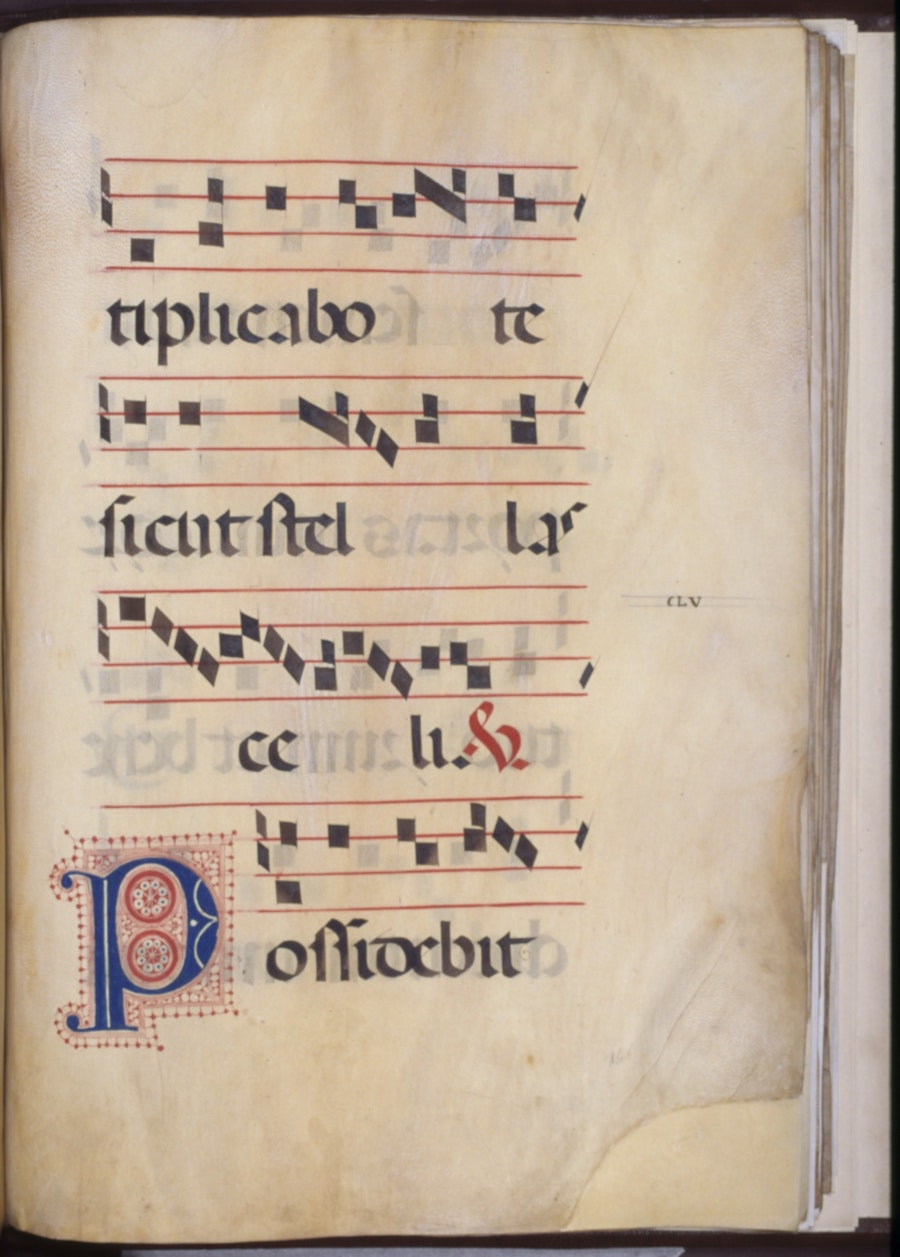 tiplicabo te
sicut stel las
ce li. ℣.
CLV
Possidebit